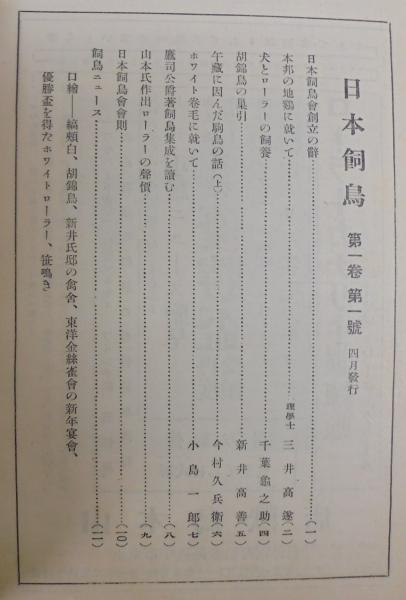 日本飼鳥 第一卷 第一號 四月發行
日本飼鳥會創立の辭……(一)
本邦の地鷄に就いて……理學士 三井高遂(二)
犬とローラーの飼養……千葉龜之助(四)
胡錦鳥の巢引……新井高善(五)
午歲に因んだ駒鳥の話(上)……今村久兵衞(六)
ホワイト卷毛に就いて……小島一郎(七)
鷹司公爵著飼鳥集成を讀む……(八)
山本氏作出ローラーの聲價……(九)
日本飼鳥會會則……(一〇)
飼鳥ニュース……(一一)
口繪——縞頰白、胡錦鳥、新井氏邸の禽舍、東洋金絲雀會の新年宴會、
優勝盃を得たホワイトローラー、笹鳴き